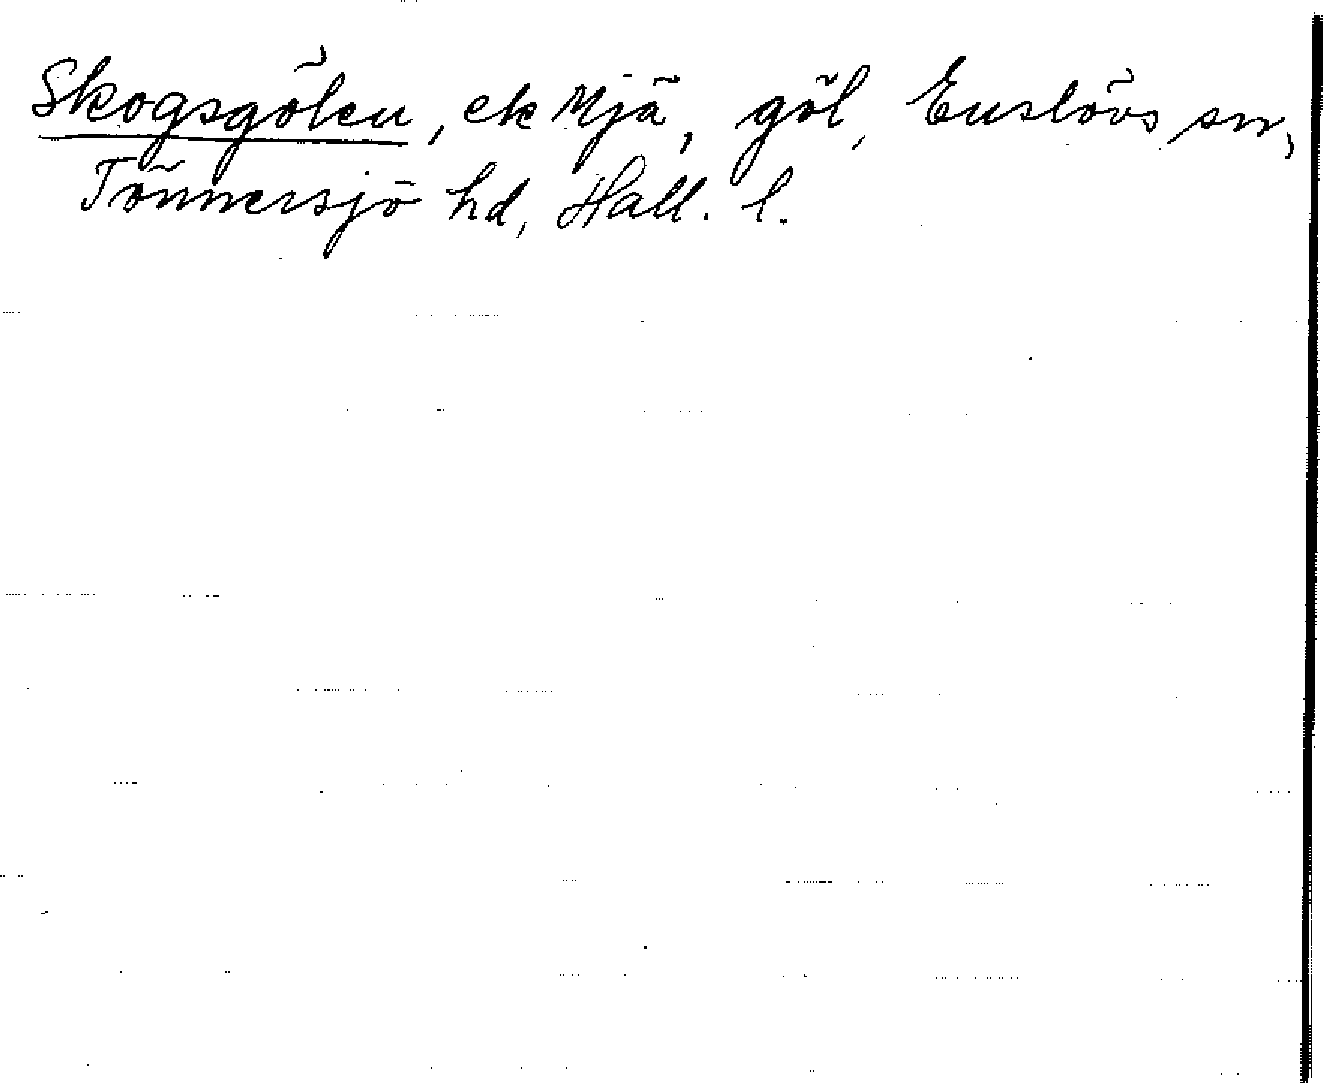 Skogsgölen, ek Mjä, göl, Enslövs sn,
Tönnersjö hd, Hall. l.